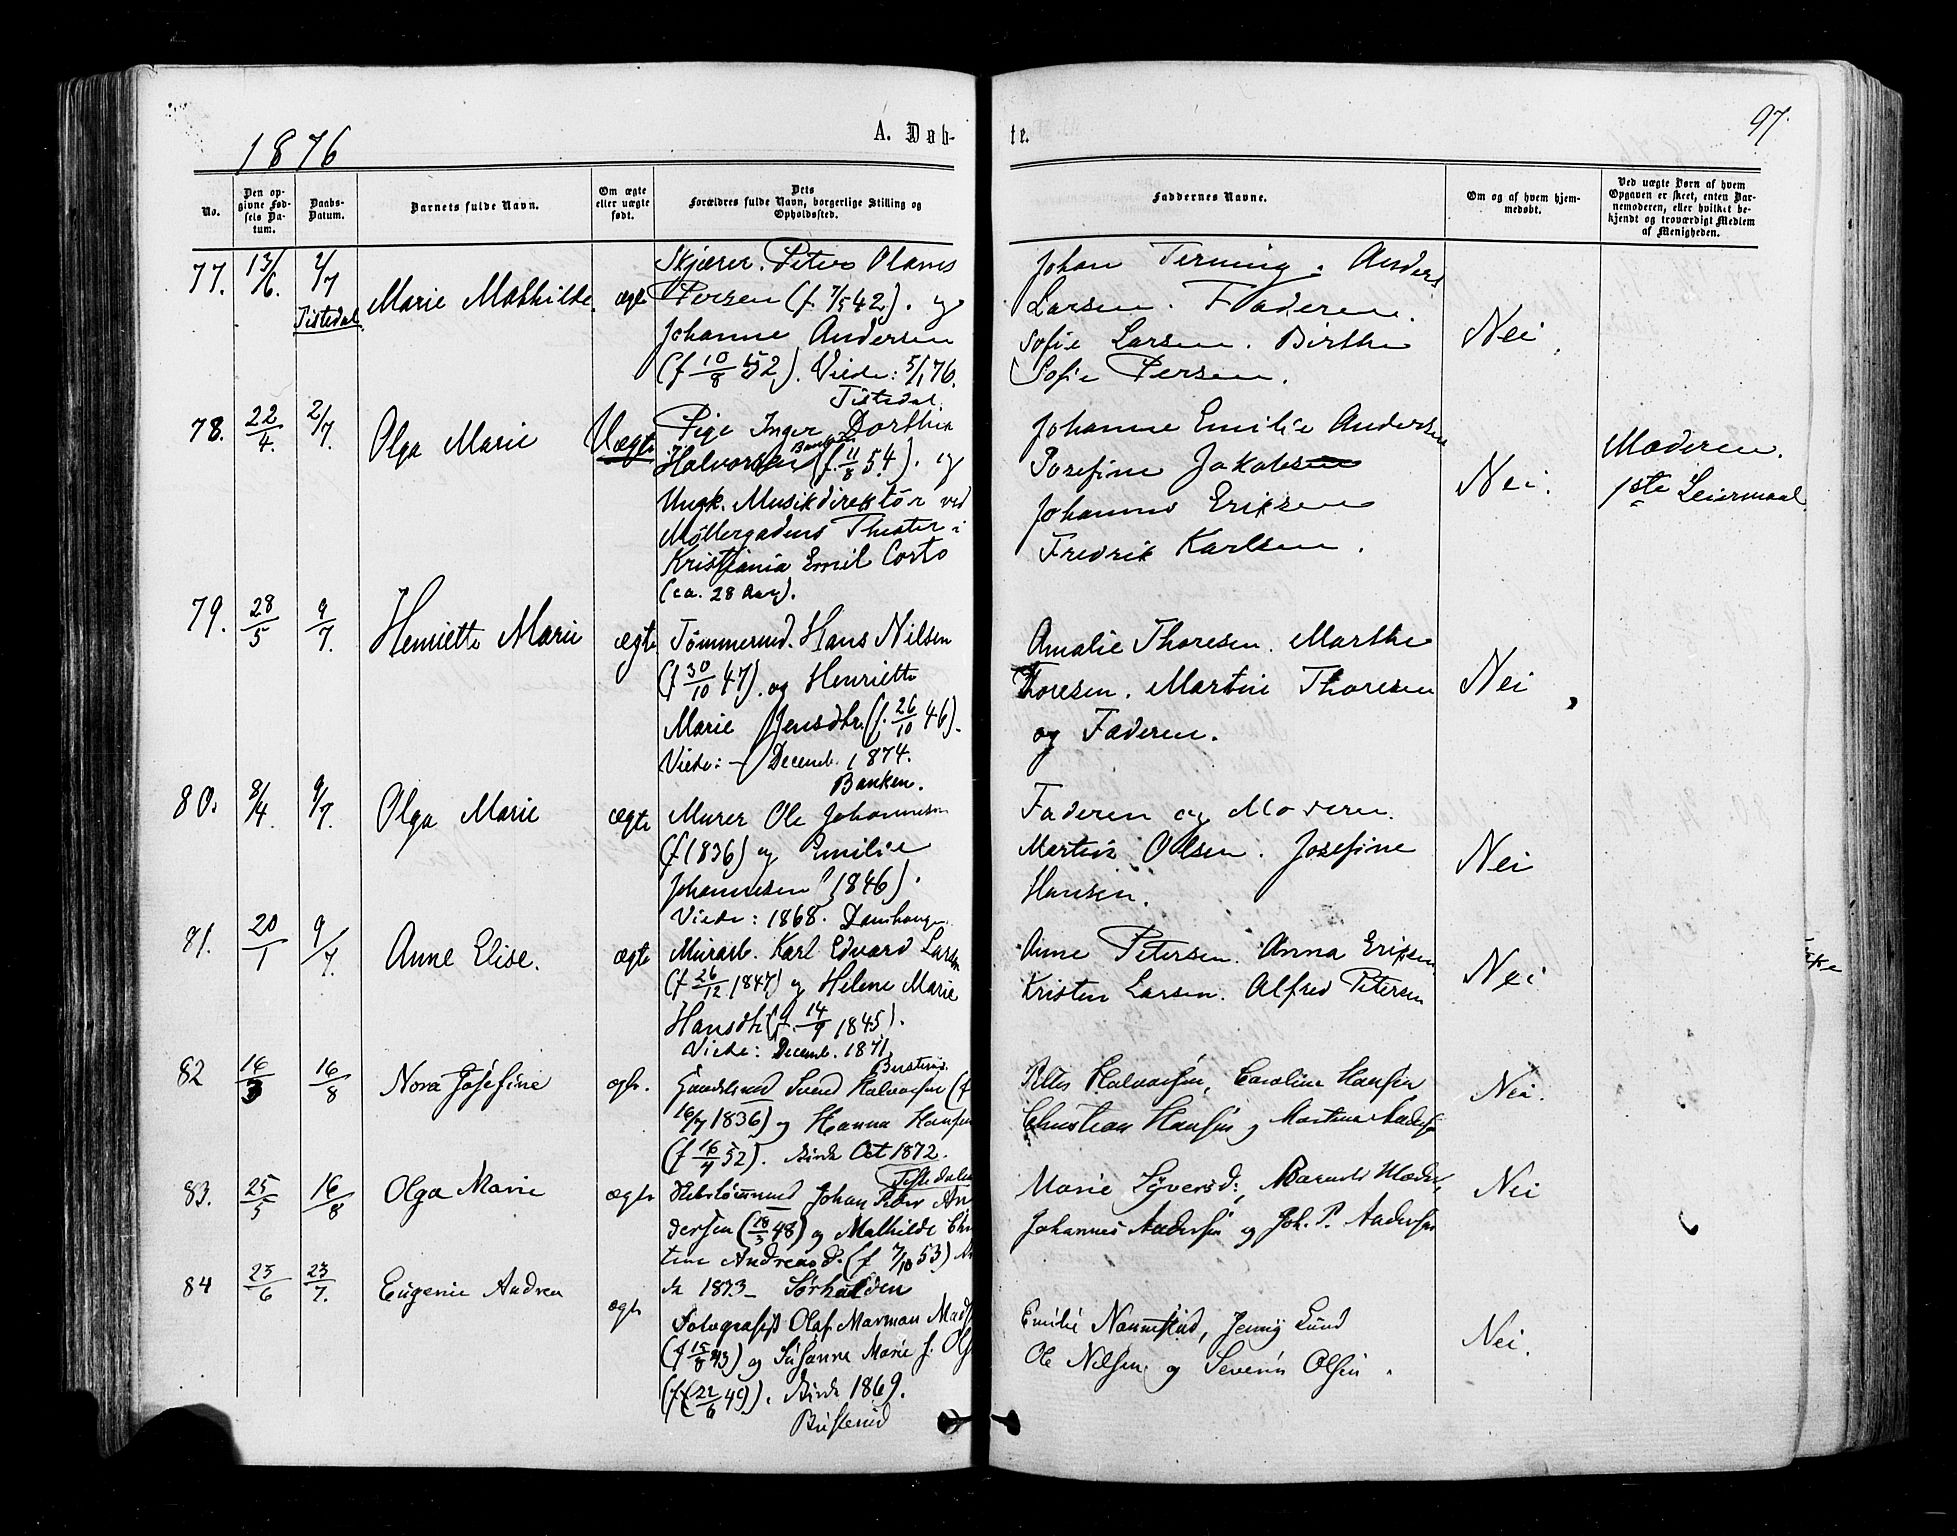 1876
A. Døb-
te.
97.
No.
Den op-
givne Fød-
sels Da-
tum.
Daabs-
Datum.
Barnets fulde Navn.
Om ægte
eller uægte
født.
Dets
Forældres fulde Navn, borgerlige Stilling og
Opholdssted.
Faddernes Navne.
Om og af hvem hjem-
medøbt.
Ved uægte Børn af hvem
Opgaven er skeet, enten Bar-
nemoderen, eller hvilket be-
kjendt og troværdigt Medlem
af Menigheden.
77. 13/6. 2/7 Tistedal. Marie Mathilde. ægte
Skjærer. Peter Olaves
Persen (f 7/5 42). og
Johanne Andersen
(f 10/8 52). Viede: 5/1 76.
Tistedal.
Johan Terning. Anders
Larsen. Faderen.
Sofie Larsen. Birthe
Sofie Persen.
Nei.
78. 22/4. 2/7. Olga Marie Uægte
Pige Inger Dorthea
Halvorsen Banken (f. 11/8 54). og
Ungk. Musikdirektør ved
Møllergadens Theater i
Kristiania Emil Corto
(ca. 28 Aar).
Johanne Emilie Andersen
Josefine Jakobsen
Johannes Eriksen
Fredrik Karlsen.
Nei.
Moderen.
1ste Leiermaal
79. 28/5 9/7. Henriette Marie ægte
Tømmermd. Hans Nilsen
(f 30/10 47). og Henriette
Marie Jensdtr. (f. 26/10 46).
Viede: - Decemb. 1874.
Banken.
Amalie Thoresen. Marthe
Thoresen. Martine Thoresen
og Faderen.
Nei
80. 8/4. 9/7. Olga Marie ægte
Murer Ole Johannesen
(f 1836) og Emilie
Johannesen (1846).
Viede: 1868. Damhaugen
Faderen og Moderen.
Martin Olsen. Josefine
Hansen.
Nei
81. 20/1 9/7. Anne Elise. ægte
Murarb. Karl Edvard Larsen
(f 26/12 1847) og Helene Marie
Hansdtr (f. 14/9 1845).
Viede: Decemb. 1871
Anne Petersen. Anna Eriksen
Kristen Larsen. Alfred Petersen
Nei
82 16/3 16/8 Nora Josefine ægte.
Busterud.
Svend Halvorsen (f
16/7 1836) og Hanna Hansen
(f 16/4 52). Viede Oct 1872.
Halvorsen, Caroline Hansen
Christian Hansen og
Nei.
83. 25/5 16/8 Olga Marie ægte
Tistedalen
Johan Peter An
dersen (18/3 48) og Mathilde Chri
tine Andreasd. (f 7/10 53)
1873 - Sørhalden
Marie Syversd:,
Johannes Andersen og Joh. P. Andersen
Nei
84 23/6 23/7. Eugenie Andrea ægte
Fotografist Olaf Marman
(f 15/8 43) og Susanne Marie J.
(f (22/6 49). Viede 1869.
Busterud
Emilie Nannestad, Jenny Lund
Ole Nilsen og Severin Olsen.
Nei.